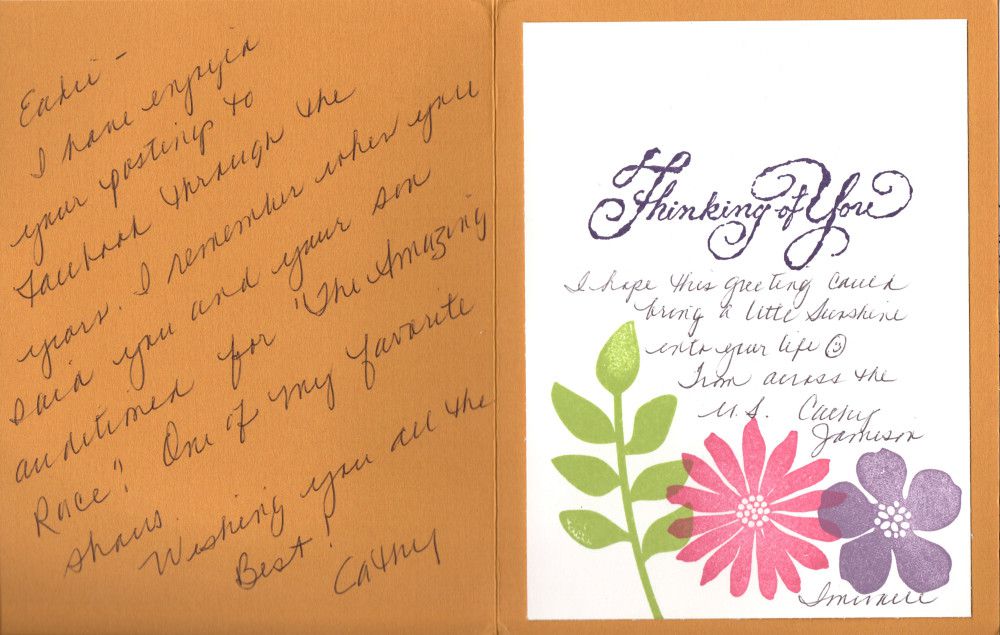 I have enjoyed
your postings to
Facebook through the
years. I remember when you
said you and your son
auditioned for "The Amazing
Race". One of my favorite
shows. Wishing you all the
Best!
Cathy
Thinking of You
I hope this greeting could
bring a little Sunshine
into your life
From across the
U.S. Cathy
Jamison